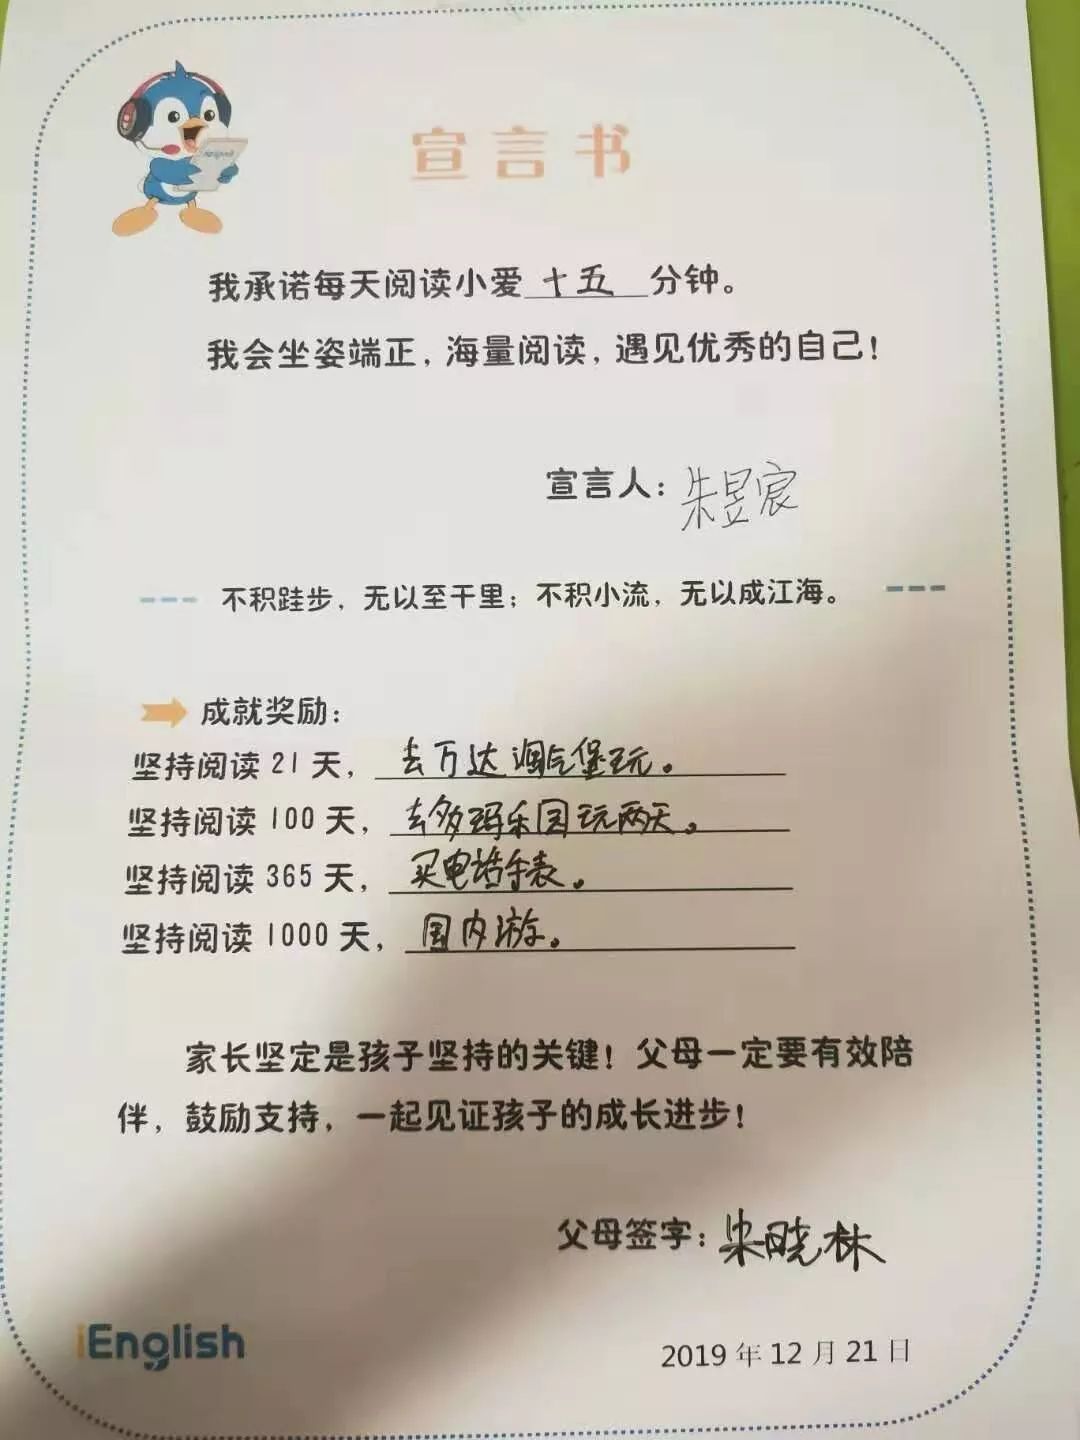 宣言书
我承诺每天阅读小爱十五分钟。
我会坐姿端正,海量阅读,遇见优秀的自己!
宣言人:朱昱宸
不积跬步,无以至千里;不积小流,无以成江海。
成就奖励:
坚持阅读21天,去万达淘气堡玩。
坚持阅读100天,去多玛乐园玩两天。
坚持阅读365天,买电话手表。
坚持阅读1000天,国内游。
家长坚定是孩子坚持的关键!父母一定要有效陪
伴,鼓励支持,一起见证孩子的成长进步!
父母签字:晓林
iEnglish
2019年12月21日